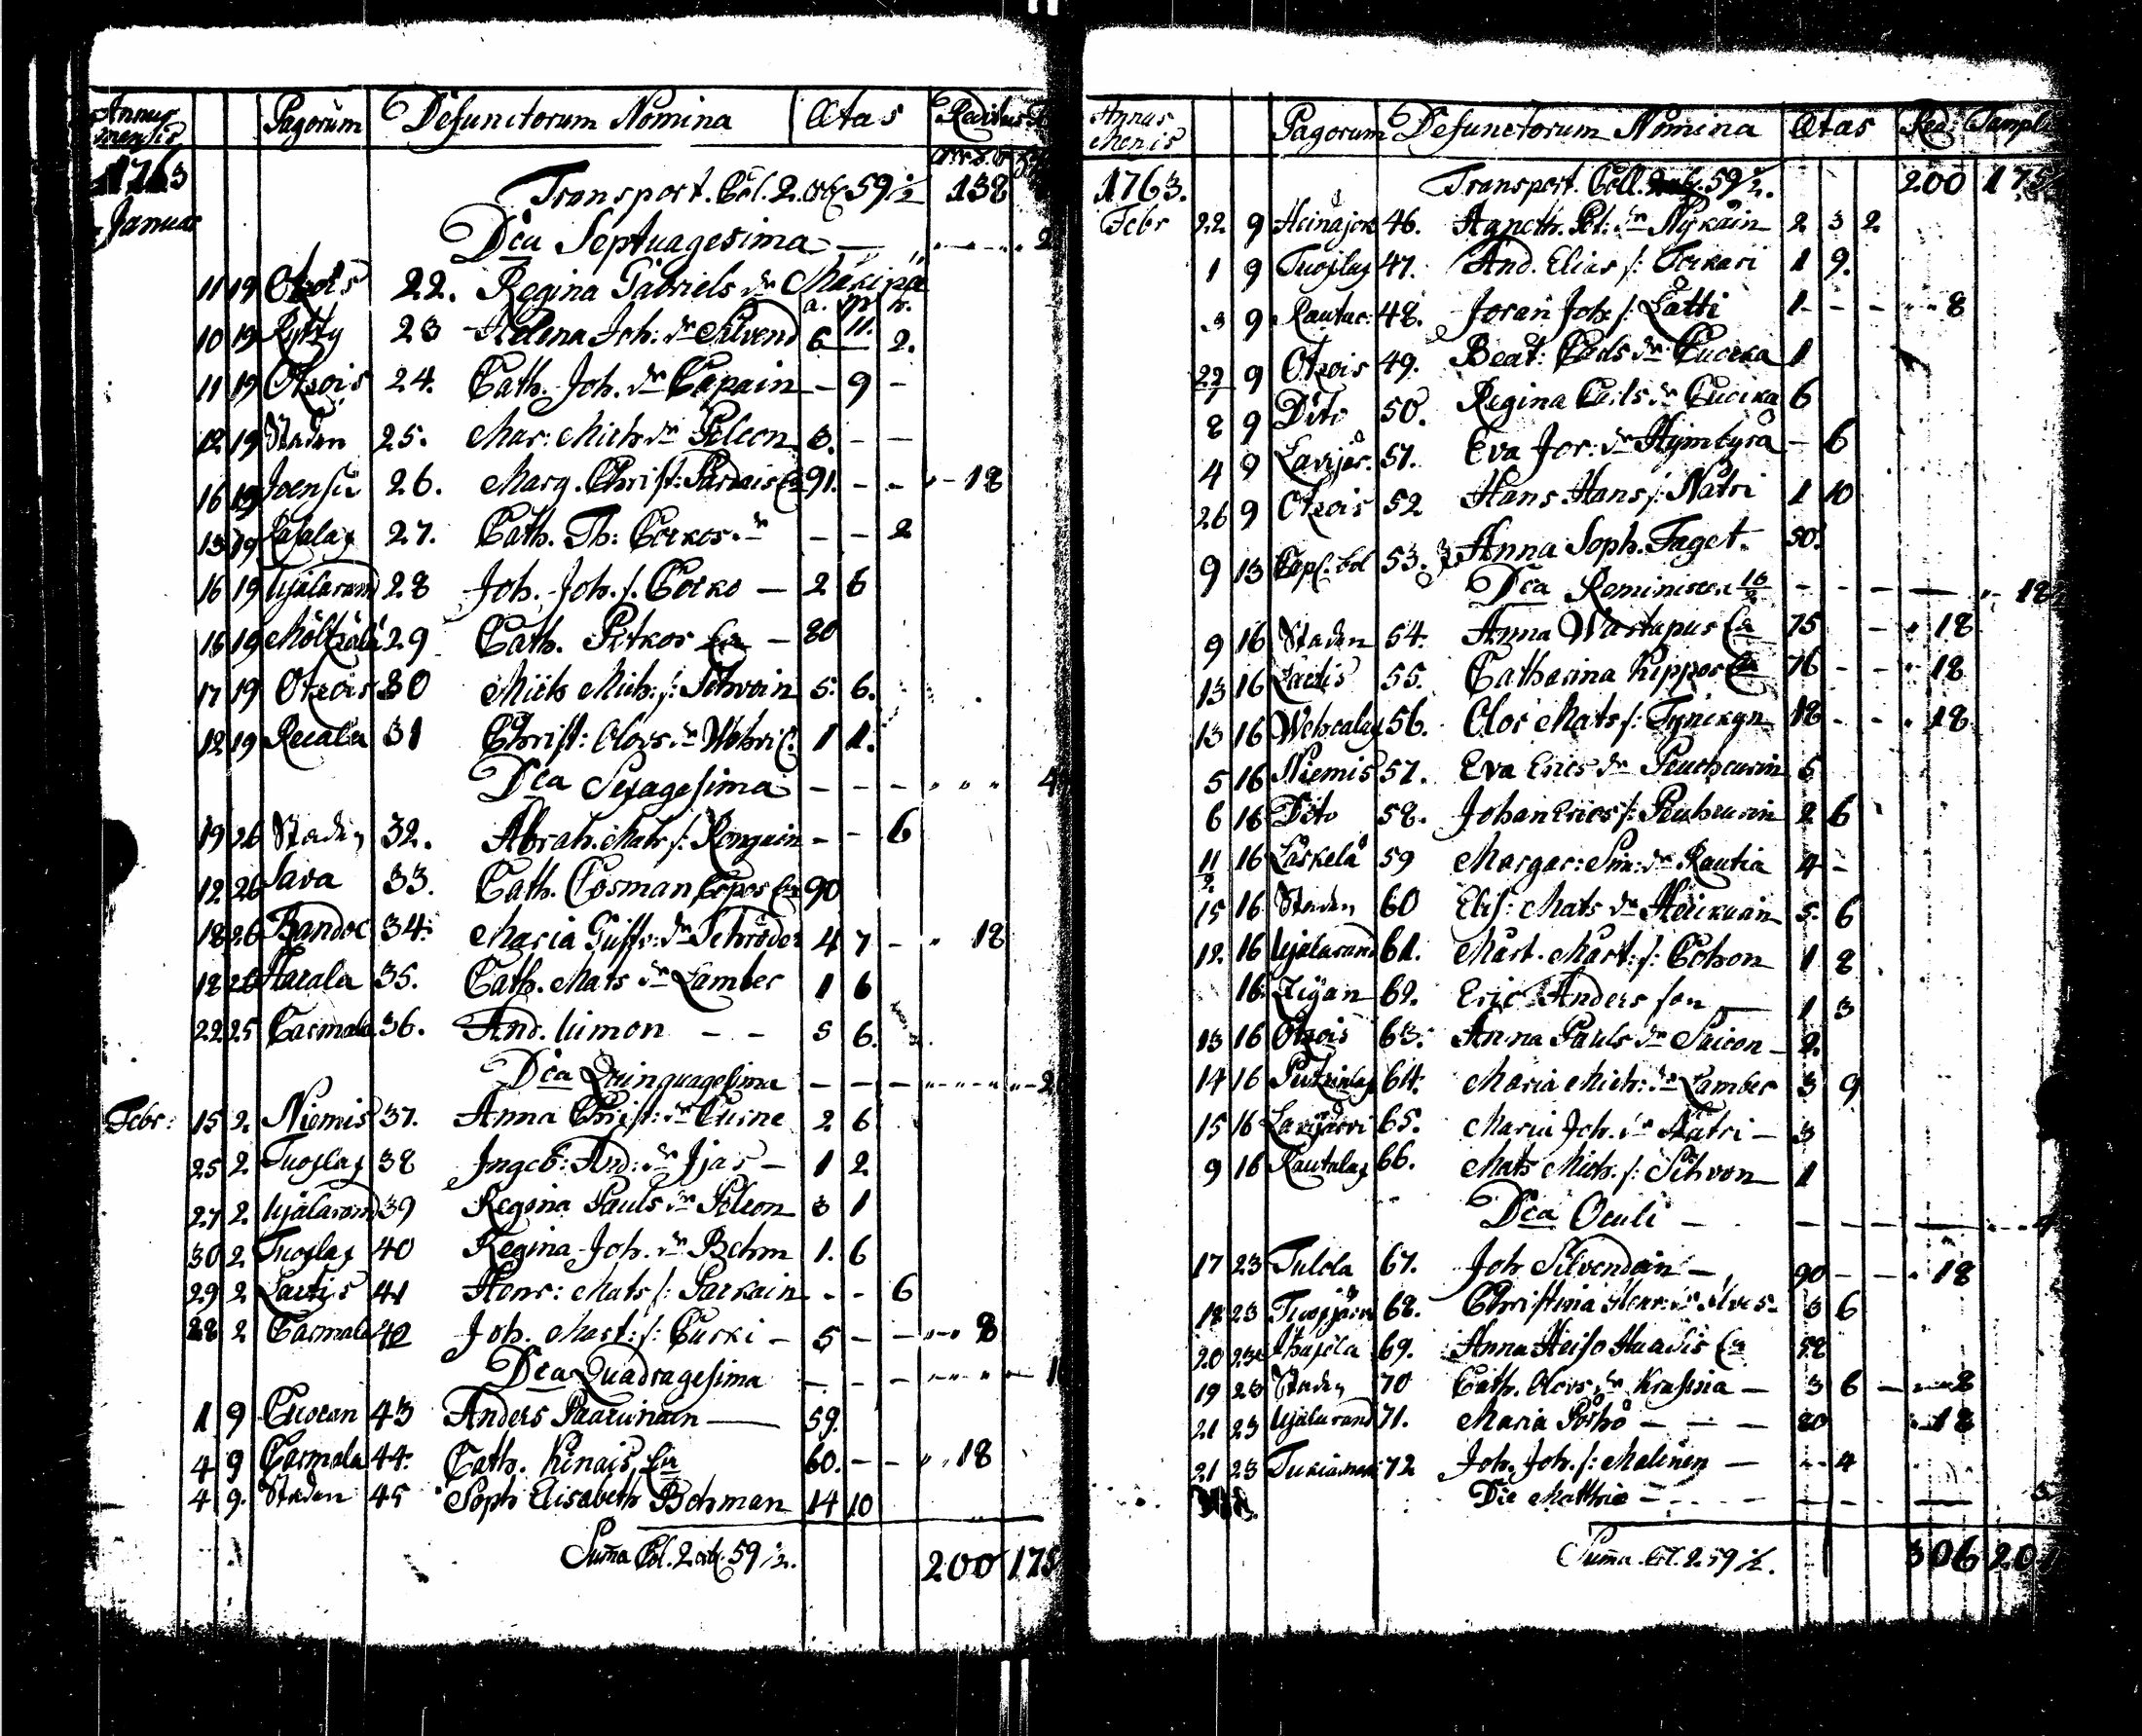 Annus mensis Pagorum Defunctorum Nomina Ætas Reditus
1763 Transport. Col. 2. 59 1/2 138
Januar Dca Septuagesima — 2
11 19 Otsois 22. Regina Gabriels dr Mäkipä
a. m. h.
10 19 Rytty 23 Helena Joh: dr Silvend 6 11. 2.
11 19 Otsois 24. Cath. Joh. dr Capain — 9 —
12 19 Staden 25. Mar: Mich dr Pelcon 3. — —
16 19 Joensu 26. Marg. Christ: Pardais Ea 91. — — 18
13 19 27. Cath. Th: Corkos. dr — — 2
16 19 Ujälarand 28 Joh. Joh. s. Corko — 2 6
16 19 29 Cath. Pitkos Ea — 80
17 19 Otsois 30 Mich Mich: s: Tihvoin 5. 6.
12 19 Recala 31 Christ: Olovs dr 1 1.
Dca Sexagesima — — — 4
19 26 Staden 32. Abrah. Mats s: — — 6
12 26 Sava 33. Cath. Cosman Ea 90
18 26 34. Maria dr Schröder 4 7 — 18
18 26 Hacala 35. Cath. Mats dr Lamber 1 6
22 25 Carmala 36. And. Uimon — — 5 6.
Dca Quinquagesima — — — 2
Febr: 15 2 Niemis 37. Anna Christ: dr Curne 2 6
25 2 Tuoslax 38 Ingeb: And: dr Ijäs — 1 2
27 2 Ujälarand 39 Regina Pauls dr Pelcon 3 1
30 2 Tuoslax 40 Regina Joh. dr Behm 1. 6
29 2 41 Henr: Mats s: Parkain — — 6
28 2 Carmala 42 Joh. Mart: s: Curki — 5 — — 8
Dca Quadragesima — — — 1
1 9 43 Anders Paarunain — 59.
4 9 Carmala 44. Cath. Kinais Ea 60. — — 18
4 9. Staden 45 Soph Elisabeth Bohman 14 10
Summa Col. 2 59 1/2. 200 175
Annus Mensis Pagorum Defunctorum Nomina Ætas Red: Templ
1763. Transport. Coll. 59 1/2. 200 175
Febr 22 9 Heinäjok 46. Agneth. Pet: dr Nykäin 2 3 2
1 9 Tuoslax 47. And. Elias s: Torkari 1 9.
3 9 Rautac: 48. Joran Joh. s: Lätti 1 — — 8
9 Otsois 49. Beat: Carls dr Cucika 1
8 9 Dito 50. Regina Carls dr Cucika 6
4 9 Lavijär. 51. Eva Jor: dr Hymbyrä — 6
26 9 Otsois 52 Hans Hans s: Nätri 1 10
9 13 53. Anna Soph. Taget. 50.
Dca Reminiscere — — — 18
9 16 Staden 54. Anna Wartapus Ea 75 — 18
13 16 55. Catharina Kippos Ea 76 — — 18
13 16 Wehcalax 56. Olof Mats s: Tynikyn 18 — — 18
5 16 Niemis 57. Eva Erics dr Peuhcurin 5
6 16 Dito 58. Johan Erics s: Peuhcurin 2 6
11 16 Läskelä 59 Margar: Sim: dr Rautia 4 —
15 16 Staden 60 Elis: Mats dr Heickiäin 5. 6
12 16 Ujälarand 61. Mårt. Mårt: s: Cohon 1 8
16 62. Eric Anders son — 1 3
13 16 Otsois 63. Anna Pauls dr Saicon — 2.
14 16 64. Maria Mich: dr Lamber 3 9
15 16 Lavijärvi 65. Maria Joh. dr Nätri — 3
9 16 Rautalax 66. Mats Mich. s: Tihvon 1
Dca Oculi — — — 4
17 23 Tulola 67. Joh Silvendoin — 90 — — 18
18 23 Tuosjärvi 68. Christina Henr: dr 3 6
20 23 69. Anna Ea 58
19 23 Staden 70 Cath. Olovs dr Krasnia — 3 6 — 8
21 23 Ujälarand 71. Maria Pörhö — — — 80 18
21 23 72 Joh. Joh. s: Malinen — — 4
Die Matthiæ — — —
Summa Col. 2. 59 1/2. 306 20